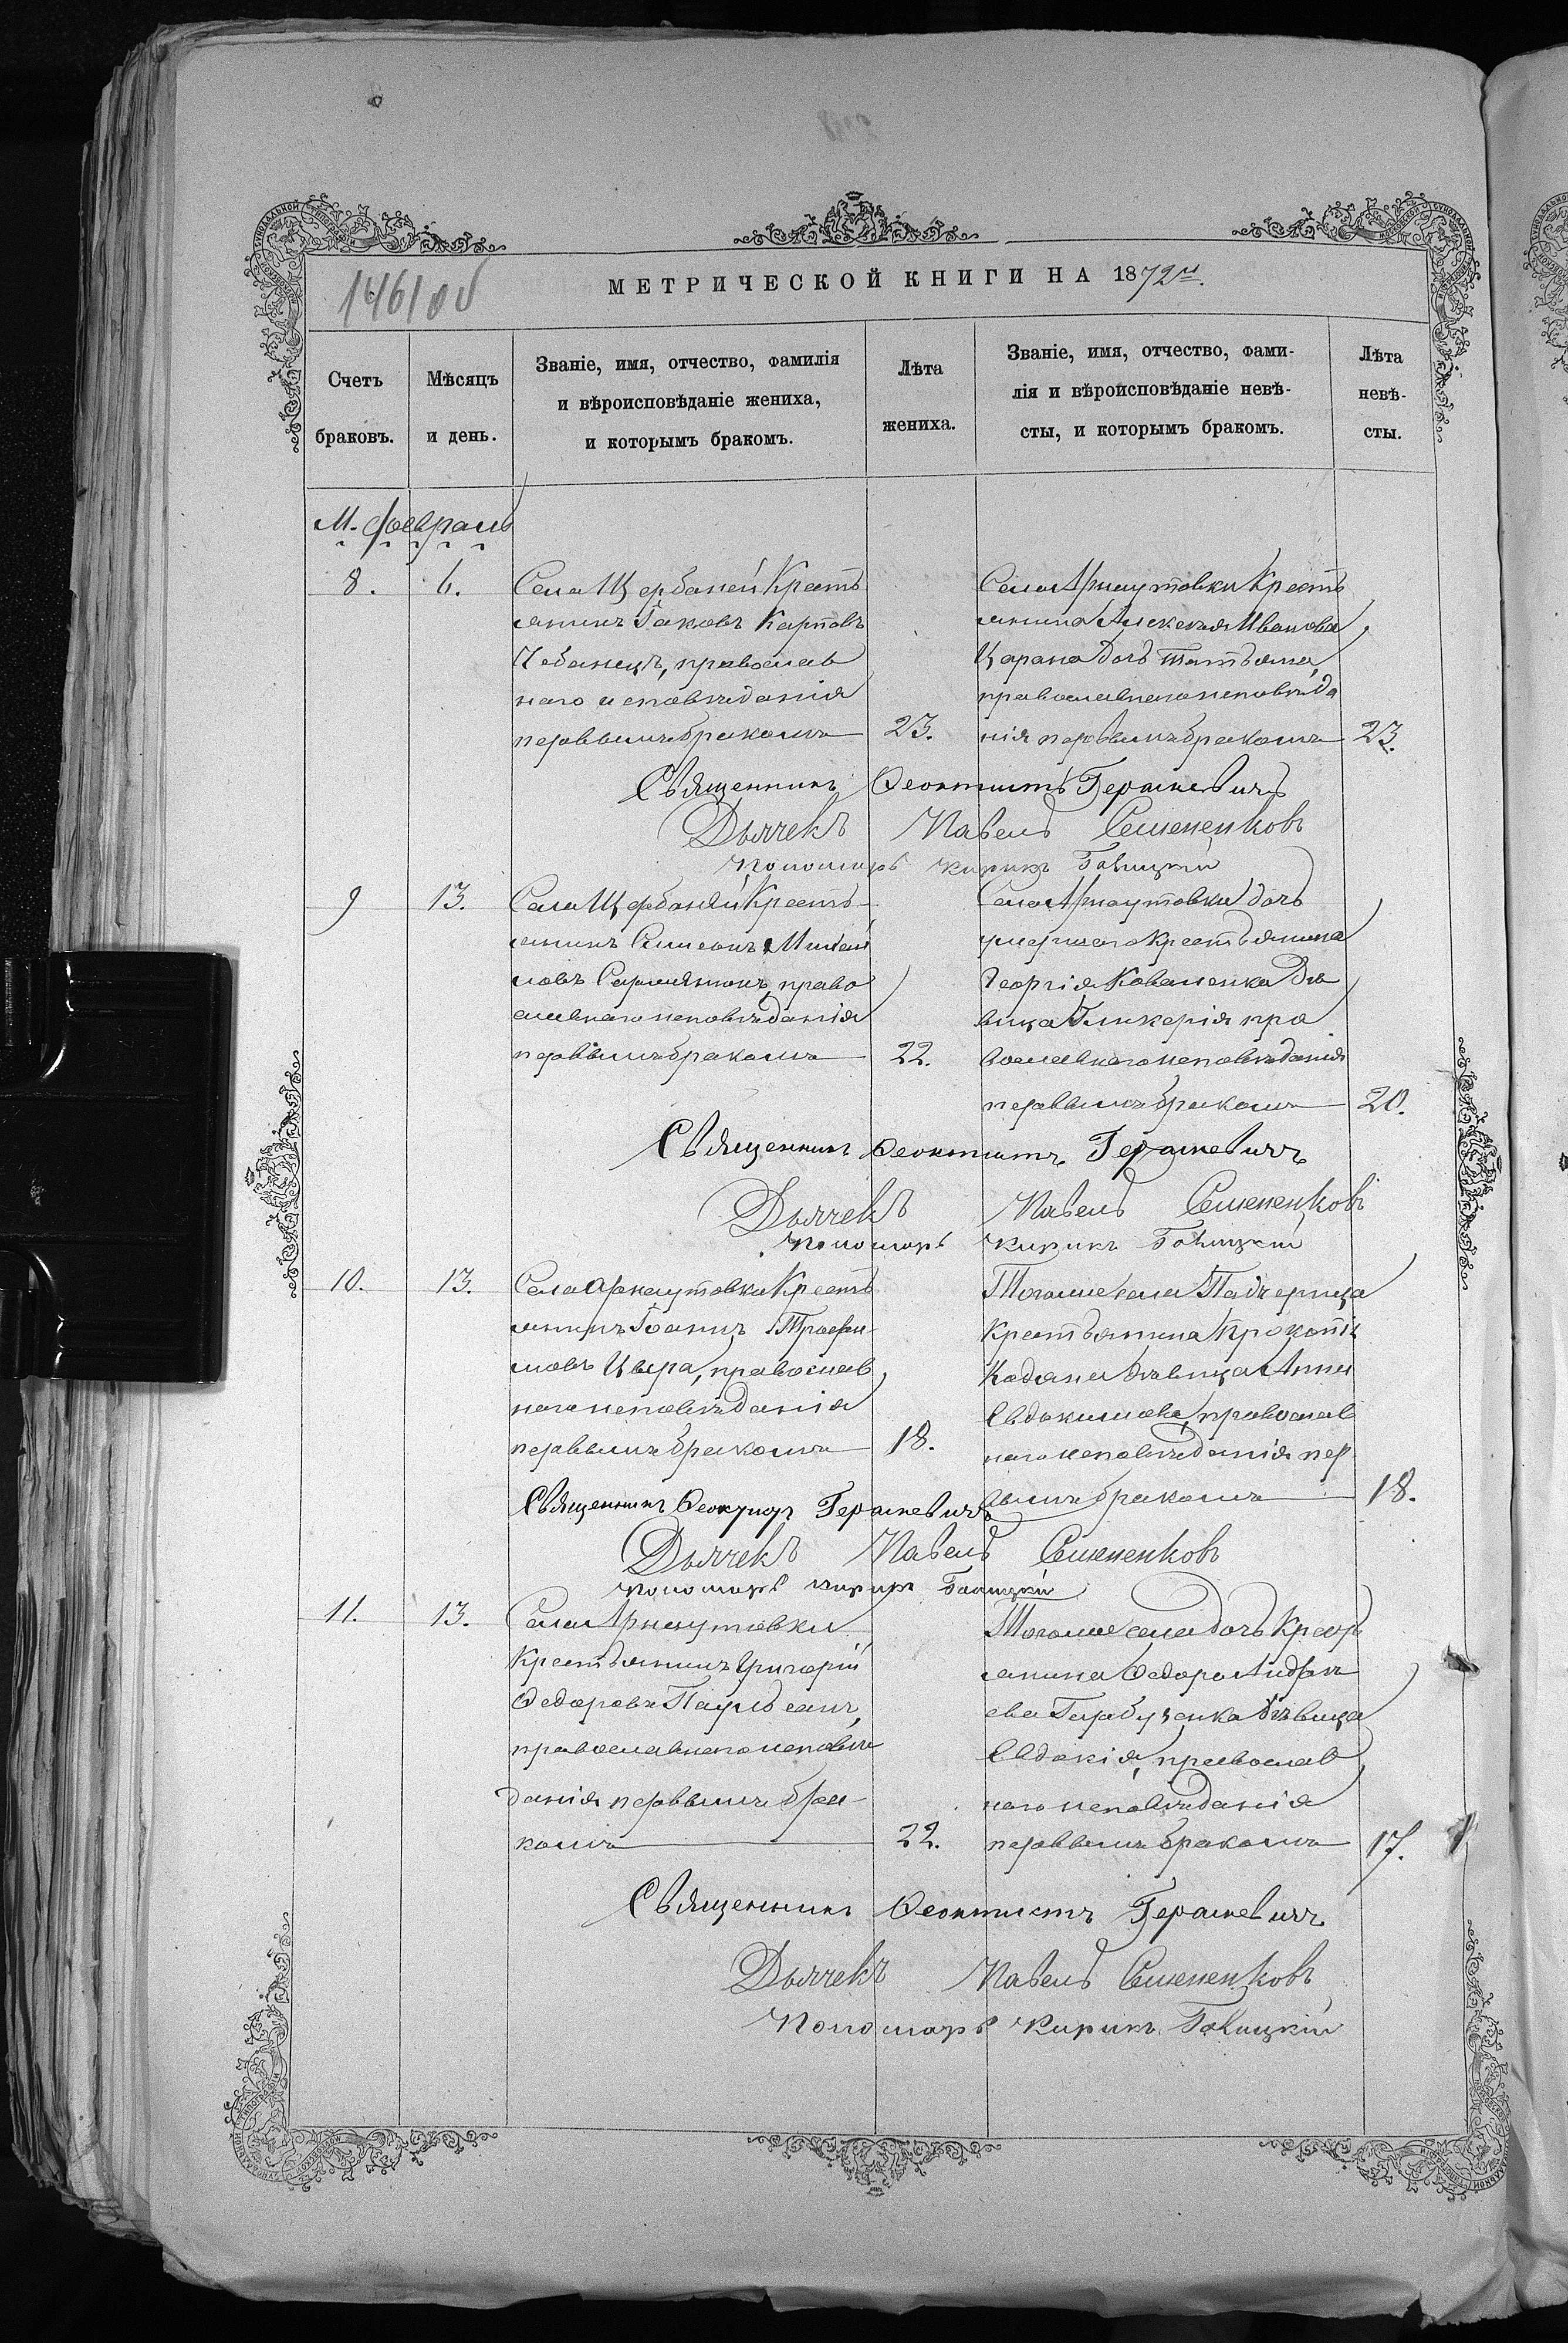 1461 об
МЕТРИЧЕСКОЙ КНИГИ НА 1872й.
Счетъ браковъ.
Мѣсяцъ и день.
Званіе, имя, отчество, фамилія
и вѣроисповѣданіе жениха,
и которымъ бракомъ.
Лѣта жениха.
Званіе, имя, отчество, фами-
лія и вѣроисповѣданіе невѣ-
сты, и которымъ бракомъ.
Лѣта невѣ-
сты.
М. Февраль
8. 6.
Села Щербаней Кресть
янинъ Іаковъ Карповъ
Чебанецъ, православ
наго исповѣданія
первымъ бракомъ 23.
Села Арнаутовки Кресть
янина Алексѣя Иванова
Царана дочь Татьяна,
православнаго исповѣда
нія первымъ бракомъ 23.
Священникъ Феоктистъ Герашевичъ
Дьячекъ Павелъ Семененковъ
Пономарь Кирикъ
9 13.
Села Щербаней Кресть
янинъ Симеонъ Михаи
ловъ право
славнаго исповѣданія
первымъ бракомъ 22.
Села Арнаутовки дочь
умершаго Крестьянина
Георгія Коваленка Дѣ
вица Гликерія пра
вославнаго исповѣданія
первымъ бракомъ 20.
Священникъ Феоктистъ Герашевичъ
Дьячекъ Павелъ Семененковъ
Пономарь Кирикъ
10. 13.
Села Арнаутовки Кресть
янинъ Іоаннъ Трофи
мовъ Цыра, православ
наго исповѣданія
первымъ бракомъ 18.
Тогоже села Падчерица
Крестьянина Прокопія
Кадяна дѣвица Анна
Евдокимова, православ
наго исповѣданія пер
вымъ бракомъ 18.
Священникъ Феоктистъ Герашевичъ
Дьячекъ Павелъ Семененковъ
Пономарь Кирикъ
11. 13.
Села Арнаутовки
Крестьянинъ Григорій
Федоровъ
православнаго исповѣ
данія первымъ бра
комъ 22.
Тогоже села дочь Кресть
янина Федора Андре
ева дѣвица
Евдокія, православ
наго исповѣданія
первымъ бракомъ 17.
Священникъ Феоктистъ Герашевичъ
Дьячекъ Павелъ Семененковъ
Пономарь Кирикъ